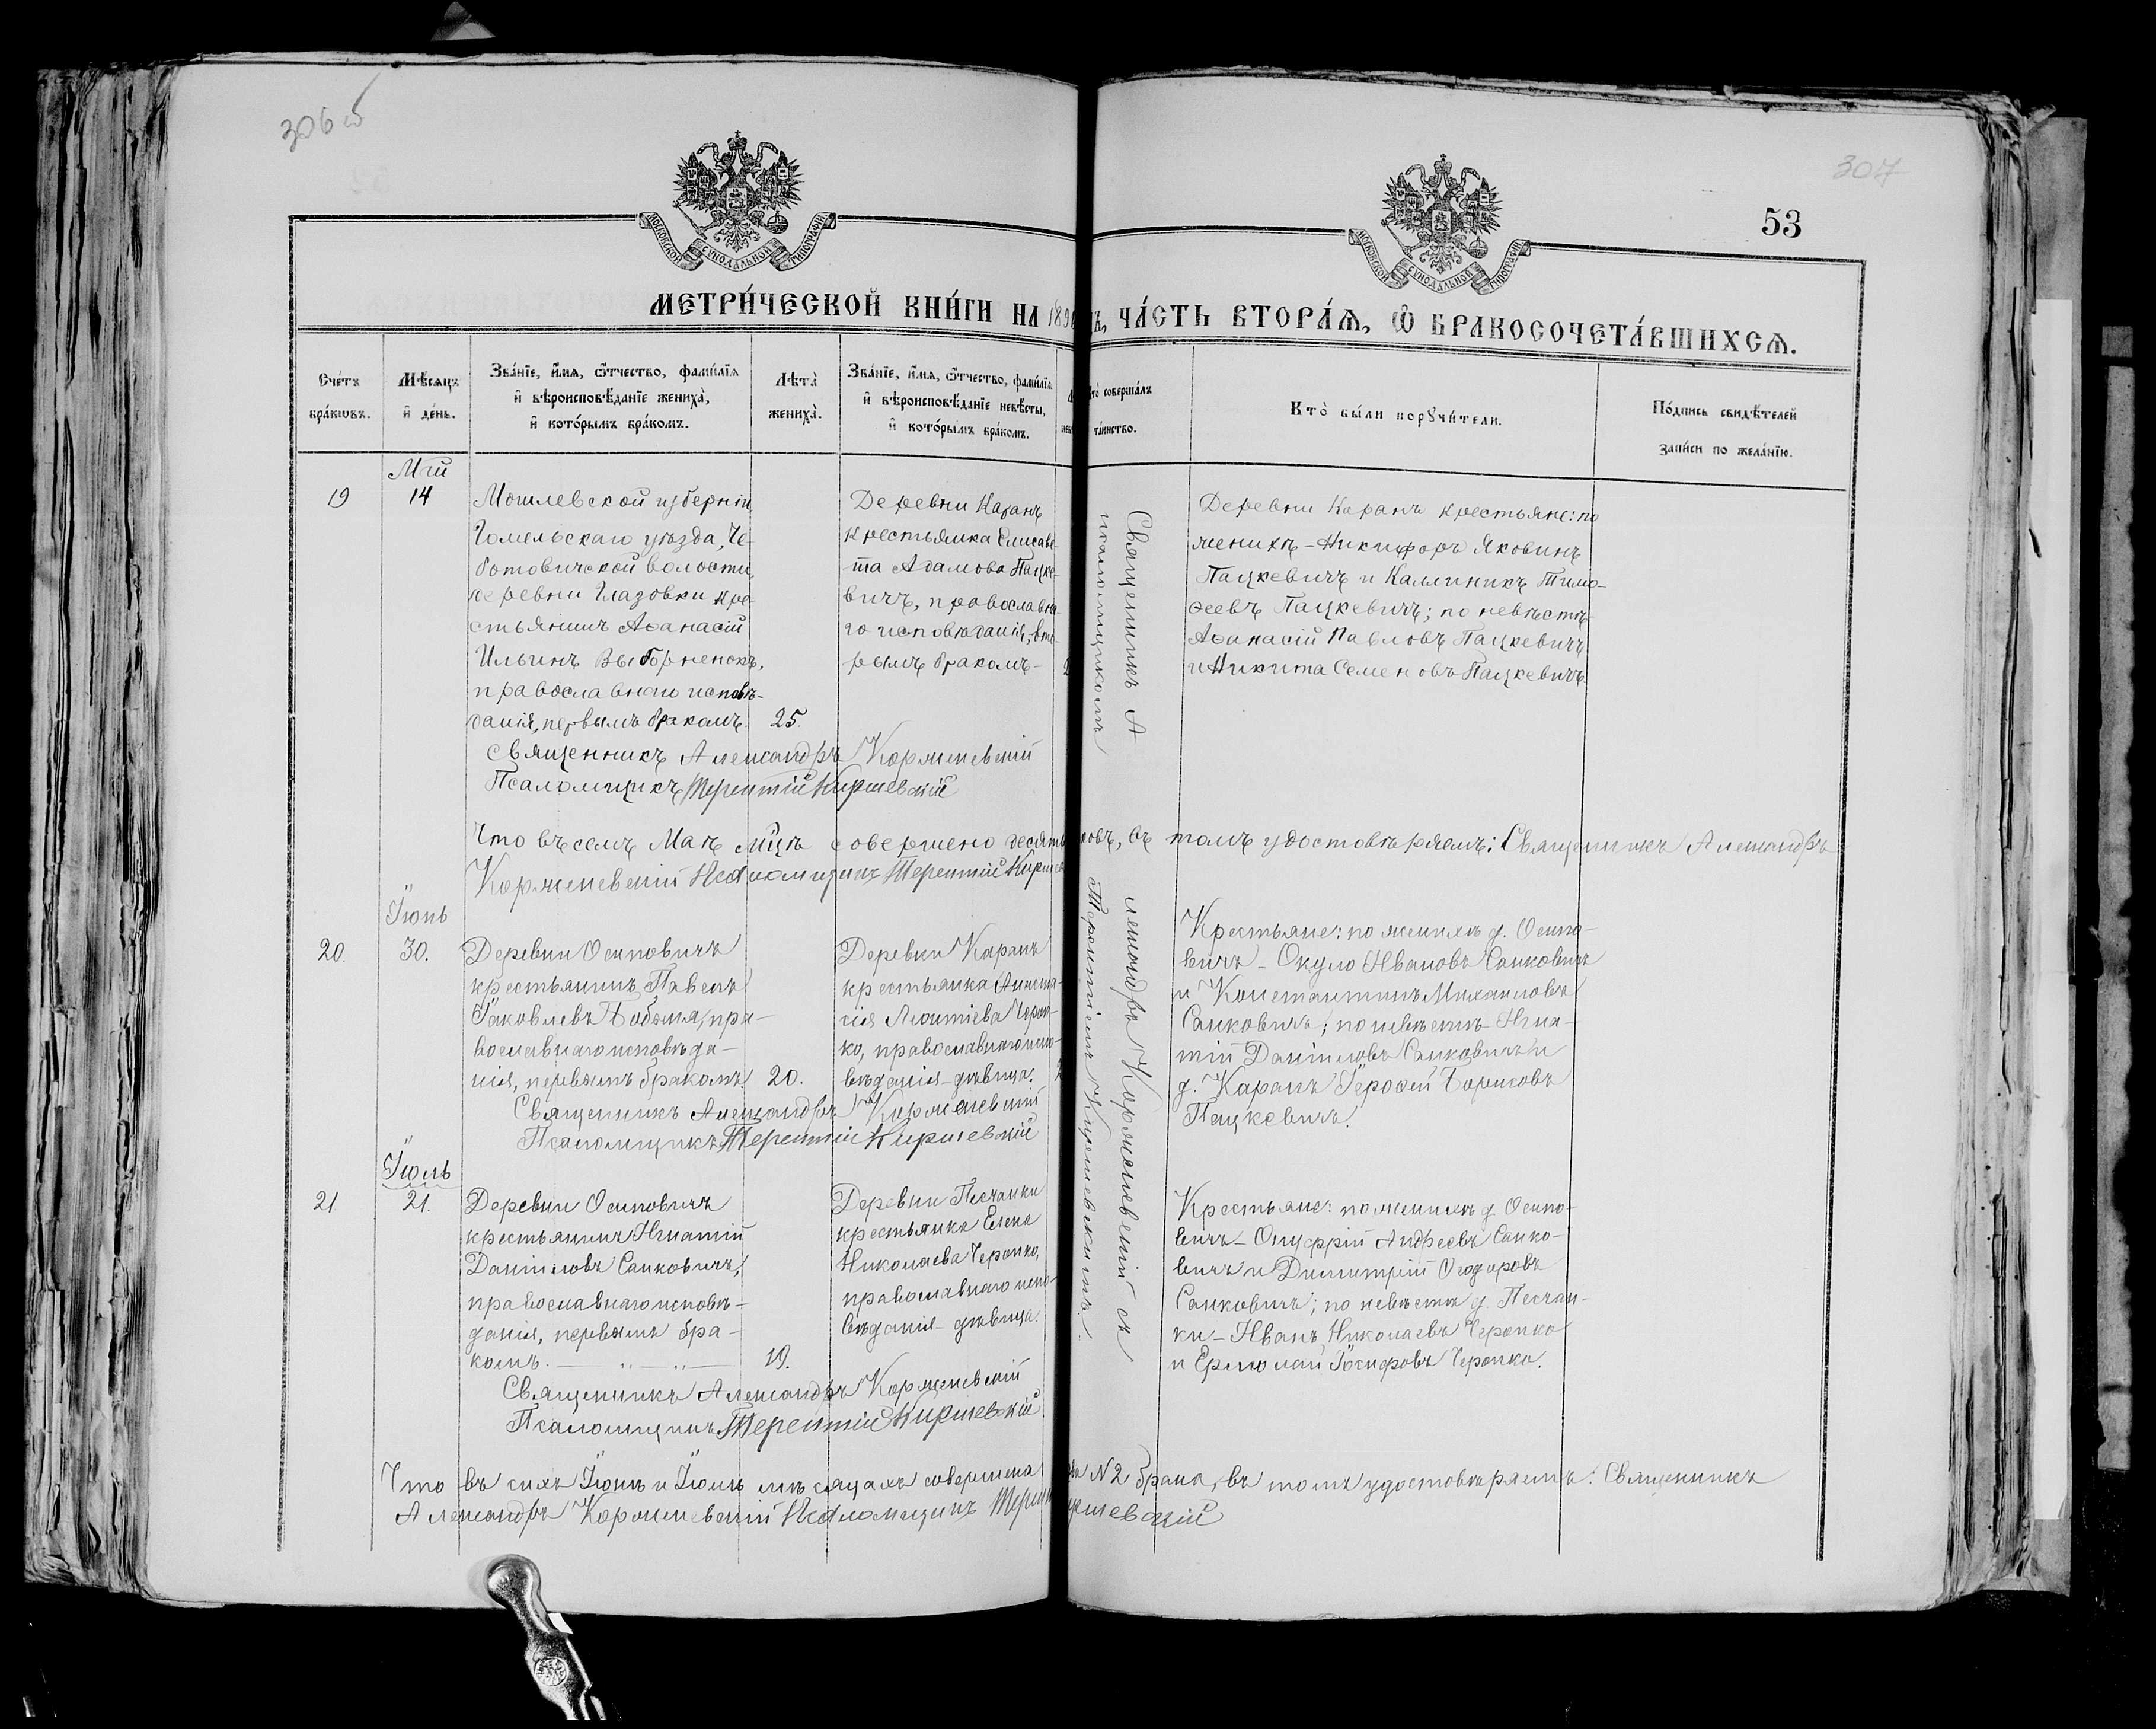 306 об
307
53
МОСКОВСКОЙ СѴНОДАЛЬНОЙ ТИПОГРАФІИ
МОСКОВСКОЙ СѴНОДАЛЬНОЙ ТИПОГРАФІИ
МЕТРИ́ЧЕСКОЙ КНИ́ГИ НА ЧА́СТЬ ВТОРА́Ѧ, Ѽ БРАКОСОЧЕТА́ВШИХСѦ.
Сче́тъ бра́кѡвъ.
Мѣ́сяцъ и҆ де́нь.
Зва́нїе, и҆́мя, ѻ҆́тчество, фами́лїя и҆ вѣроисповѣ́данїе жениха̀, и҆ кото́рымъ бра́комъ.
Лѣта̀ жениха̀.
Зва́нїе, и҆́мя, ѻ҆́тчество, фами́лїя и҆ вѣроисповѣ́данїе невѣ́сты, и҆ кото́рымъ бра́комъ.
Кто̀ соверша́лъ та́инство.
Кто̀ бы́ли порꙋчи́тели.
По́дпись свидѣ́телей за́писи по жела́нїю.
Май
19
14
Могилевской губерніи,
Гомельскаго уѣзда, Че-
ботовичской волости,
деревни Глазовки кре-
стьянинъ Аѳанасій
Ильинъ
православнаго исповѣ-
данія, первымъ бракомъ.
25.
Деревни Каранъ
крестьянка Елисаве-
та Адамова Пацке-
вичъ, православна-
го исповѣданія, вто-
рымъ бракомъ-
Священникъ А
лександръ Корженевскій съ
псаломщикомъ
Терентіемъ Киркевскимъ.
Деревни Каранъ крестьяне: по
женихѣ - Никифоръ Яковинъ
Пацкевичъ и Каллиникъ Тимо-
ѳеевъ Пацкевичъ; по невѣстѣ
Аѳанасій Павловъ Пацкевичъ
и Никита Семеновъ Пацкевичъ.
Священникъ Александръ Корженевскій
Псаломщикъ Терентій
Что въ семъ Маѣ мцѣ совершено десять въ томъ удостовѣряемъ: Священникъ Александръ
Корженевскій Псаломщикъ Терентій
Іюнь
20.
30.
Деревни Осиповичъ
крестьянинъ Павелъ
Іаковлевъ пра-
вославнаго исповѣда-
нія, первымъ бракомъ.
20.
Деревни Каранъ
крестьянка Анаста-
сія Леонтіева Череп-
ко, православнаго испо-
вѣданія - дѣвица.
Крестьяне: по женихѣ д. Осипо-
вичъ - Окуло Ивановъ Санковичъ
и Константинъ Михаиловъ
Санковичъ; по невѣстѣ - Игна-
тій Даніиловъ Санковичъ и
д. Каранъ Іероѳей Борисовъ
Пацкевичъ.
Священникъ Александръ Корженевскій
Псаломщикъ Терентій
Іюль
21
21.
Деревни Осиповичъ
крестьянинъ Игнатій
Даніиловъ Санковичъ,
православнаго исповѣ-
данія, первымъ бра-
комъ.
19.
Деревни Песчанки
крестьянка Елена
Николаева Черепко,
православнаго испо-
вѣданія - дѣвица.
Крестьяне: по женихѣ д. Осипо-
вичъ - Онуфрій Андреевъ Санко-
вичъ и Димитрій Ѳеодоровъ
Санковичъ; по невѣстѣ д. Песчан-
ки - Иванъ Николаевъ Черепко
и Ермолай Іосифовъ Черепко.
Священникъ Александръ Корженевскій
Псаломщикъ Терентій
Что въ сихъ Іюнѣ и Іюлѣ мѣсяцахъ совершена №2 брака, въ томъ удостовѣряемъ: Священникъ
Александръ Корженевскій Псаломщикъ